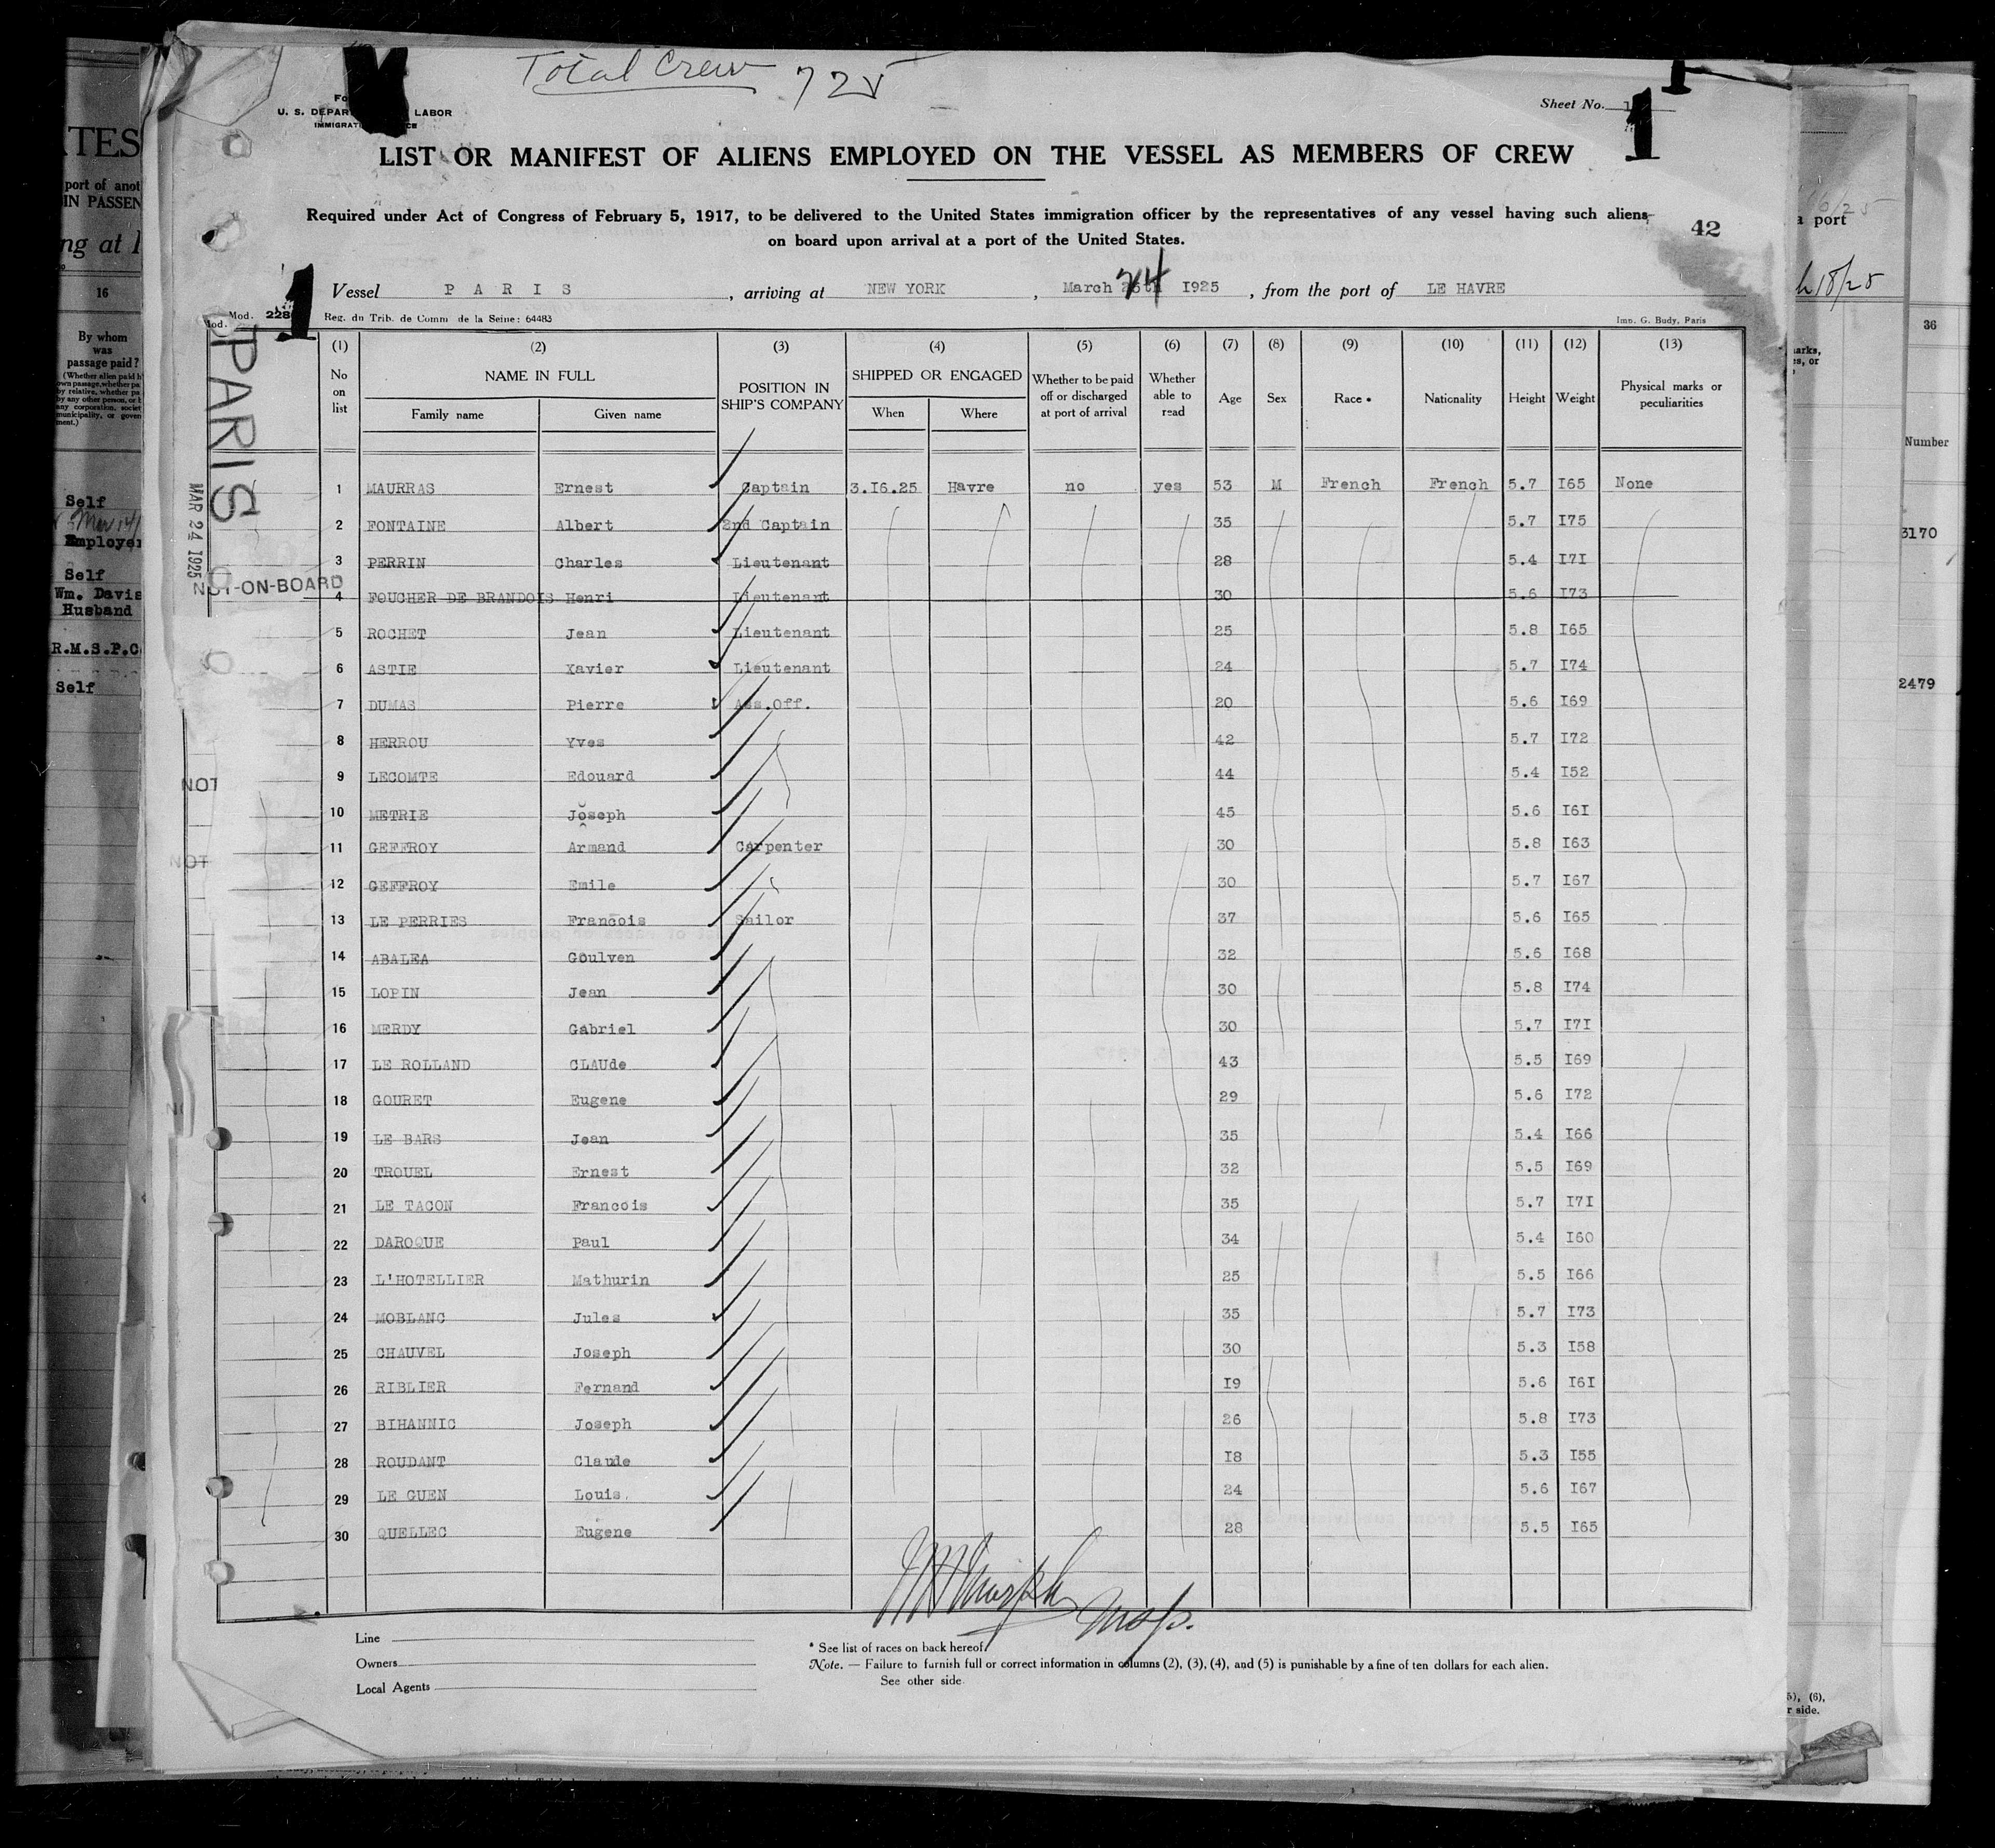 Total Crew 725
U. S. DEPAR LABOR
Sheet No. 1
1
LIST OR MANIFEST OF ALIENS EMPLOYED ON THE VESSEL AS MEMBERS OF CREW
Required under Act of Congress of February 5, 1917, to be delivered to the United States immigration officer by the representatives of any vessel having such aliens
on board upon arrival at a port of the United States.
42
Vessel P A R I S , arriving at NEW YORK , March 24 I925 , from the port of LE HAVRE
1
Mod. 228 Reg. du Trib. de Comm de la Seine: 64483 Imp. G. Budy, Paris
(1) (2) (3) (4) (5) (6) (7) (8) (9) (10) (11) (12) (13)
No on list NAME IN FULL Family name Given name POSITION IN SHIP'S COMPANY SHIPPED OR ENGAGED When Where Whether to be paid off or discharged at port of arrival Whether able to read Age Sex Race • Nationality Height Weight Physical marks or peculiarities
PARIS
MAR 24 1925
1 MAURRAS Ernest Captain 3.I6.25 Havre no yes 53 M French French 5.7 I65 None
2 FONTAINE Albert 2nd Captain 35 5.7 I75
3 PERRIN Charles Lieutenant 28 5.4 I7I
NOT-ON-BOARD
4 FOUCHER DE BRANDOIS Henri Lieutenant 30 5.6 I73
5 ROCHET Jean Lieutenant 25 5.8 I65
6 ASTIE Xavier Lieutenant 24 5.7 I74
7 DUMAS Pierre Ass.Off. 20 5.6 I69
8 HERROU Yves 42 5.7 I72
9 LECOMTE Edouard 44 5.4 I52
10 METRIE Joseph 45 5.6 I6I
11 GEFFROY Armand Carpenter 30 5.8 I63
12 GEFFROY Emile 30 5.7 I67
13 LE PERRIES Francois Sailor 37 5.6 I65
14 ABALEA Goulven 32 5.6 I68
15 LOPIN Jean 30 5.8 I74
16 MERDY Gabriel 30 5.7 I7I
17 LE ROLLAND CLAUde 43 5.5 I69
18 GOURET Eugene 29 5.6 I72
19 LE BARS Jean 35 5.4 I66
20 TROUEL Ernest 32 5.5 I69
21 LE TACON Francois 35 5.7 I7I
22 DAROQUE Paul 34 5.4 I60
23 L'HOTELLIER Mathurin 25 5.5 I66
24 MOBLANC Jules 35 5.7 I73
25 CHAUVEL Joseph 30 5.3 I58
26 RIBLIER Fernand I9 5.6 I6I
27 BIHANNIC Joseph 26 5.8 I73
28 ROUDANT Claude I8 5.3 I55
29 LE GUEN Louis 24 5.6 I67
30 QUELLEC Eugene 28 5.5 I65
Line
Owners
Local Agents
* See list of races on back hereof.
Note. — Failure to furnish full or correct information in columns (2), (3), (4), and (5) is punishable by a fine of ten dollars for each alien.
See other side
TES
port of anot
IN PASSEN
ng at
16
By whom
was
passage paid?
Self
Employer
Self
Wm. Davis
Husband
R.M.S.P.C
Self
NOT
NOT
a port
18/25
36
Number
3170
2479
5), (6),
r side.